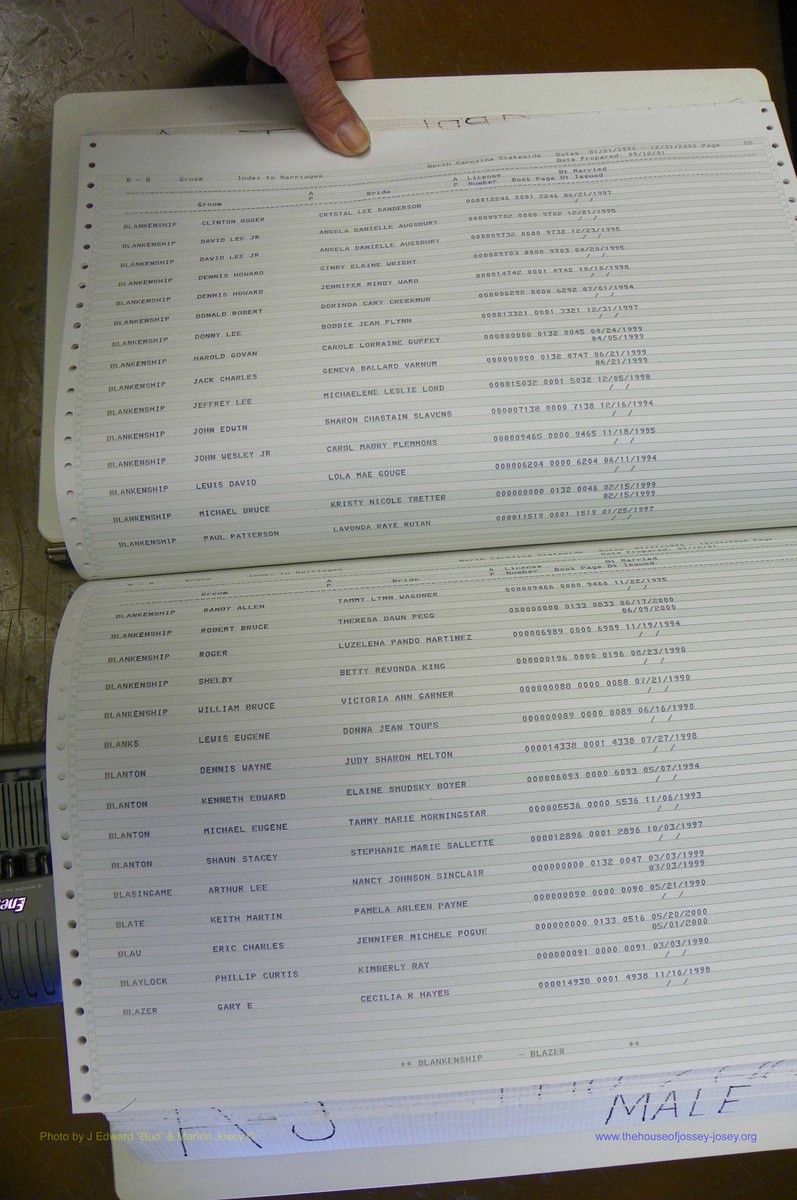 B - B Groom Index to Marriages North Carolina Statewide Dates: 01/01/1990 - 12/31/2000 Page 55
Date Prepared: 09/12/01
A A License Dt Married
Groom P Bride P Number Book Page Dt Issued
BLANKENSHIP CLINTON ROGER CRYSTAL LEE SANDERSON 000012246 0001 2246 06/21/1997
/ /
BLANKENSHIP DAVID LEE JR ANGELA DANIELLE AUGSBURY 000009702 0000 9702 12/21/1995
/ /
BLANKENSHIP DAVID LEE JR ANGELA DANIELLE AUGSBURY 000009732 0000 9732 12/23/1995
/ /
BLANKENSHIP DENNIS HOWARD CINDY ELAINE WRIGHT 000009703 0000 9703 04/20/1995
/ /
BLANKENSHIP DENNIS HOWARD JENNIFER MINDY WARD 000014742 0001 4742 10/10/1998
/ /
BLANKENSHIP DONALD ROBERT DORINDA CARY CREEKMUR 000006292 0000 6292 07/01/1994
/ /
BLANKENSHIP DONNY LEE BOBBIE JEAN FLYNN 000013321 0001 3321 12/31/1997
/ /
BLANKENSHIP HAROLD GOVAN CAROLE LORRAINE GUFFEY 000000000 0132 0045 04/24/1999
04/05/1999
BLANKENSHIP JACK CHARLES GENEVA BALLARD VARNUM 000000000 0132 0747 06/21/1999
06/21/1999
BLANKENSHIP JEFFREY LEE MICHAELENE LESLIE LORD 000015032 0001 5032 12/05/1998
/ /
BLANKENSHIP JOHN EDWIN SHARON CHASTAIN SLAVENS 000007138 0000 7138 12/16/1994
/ /
BLANKENSHIP JOHN WESLEY JR CAROL MABRY PLEMMONS 000009465 0000 9465 11/18/1995
/ /
BLANKENSHIP LEWIS DAVID LOLA MAE GOUGE 000006204 0000 6204 06/11/1994
/ /
BLANKENSHIP MICHAEL BRUCE KRISTY NICOLE TRETTER 000000000 0132 0046 02/15/1999
02/15/1999
BLANKENSHIP PAUL PATTERSON LAVONDA RAYE RUTAN 000011519 0001 1519 01/25/1997
/ /
B - B Groom Index to Marriages North Carolina Statewide Dates: 01/01/1990 - 12/31/2000 Page
Date Prepared: 09/12/01
A A License Dt Married
Groom P Bride P Number Book Page Dt Issued
BLANKENSHIP RANDY ALLEN TAMMY LYNN WAGONER 000009466 0000 9466 11/22/1995
/ /
BLANKENSHIP ROBERT BRUCE THERESA DAWN PEGG 000000000 0133 0833 06/17/2000
06/09/2000
BLANKENSHIP ROGER LUZELENA PANDO MARTINEZ 000006989 0000 6989 11/19/1994
/ /
BLANKENSHIP SHELBY BETTY REVONDA KING 000000196 0000 0196 08/23/1990
/ /
BLANKENSHIP WILLIAM BRUCE VICTORIA ANN GARNER 000000088 0000 0088 07/21/1990
/ /
BLANKS LEWIS EUGENE DONNA JEAN TOUPS 000000089 0000 0089 06/16/1990
/ /
BLANTON DENNIS WAYNE JUDY SHARON MELTON 000014338 0001 4338 07/27/1998
/ /
BLANTON KENNETH EDWARD ELAINE SMUDSKY BOYER 000006093 0000 6093 05/07/1994
/ /
BLANTON MICHAEL EUGENE TAMMY MARIE MORNINGSTAR 000005536 0000 5536 11/06/1993
/ /
BLANTON SHAUN STACEY STEPHANIE MARIE SALLETTE 000012896 0001 2896 10/03/1997
/ /
BLASINGAME ARTHUR LEE NANCY JOHNSON SINCLAIR 000000000 0132 0047 03/03/1999
03/03/1999
BLATE KEITH MARTIN PAMELA ARLEEN PAYNE 000000090 0000 0090 05/21/1990
/ /
BLAU ERIC CHARLES JENNIFER MICHELE POGUE 000000000 0133 0516 05/20/2000
05/01/2000
BLAYLOCK PHILLIP CURTIS KIMBERLY RAY 000000091 0000 0091 03/03/1990
/ /
BLAZER GARY E CECILIA R HAYES 000014938 0001 4938 11/16/1998
/ /
** BLANKENSHIP - BLAZER **
A-J MALE
Photo by J Edward "Bud" & Marion Josey
www.thehouseofjossey-josey.org